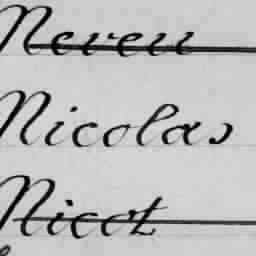 Neveu
Nicolas
Nicot